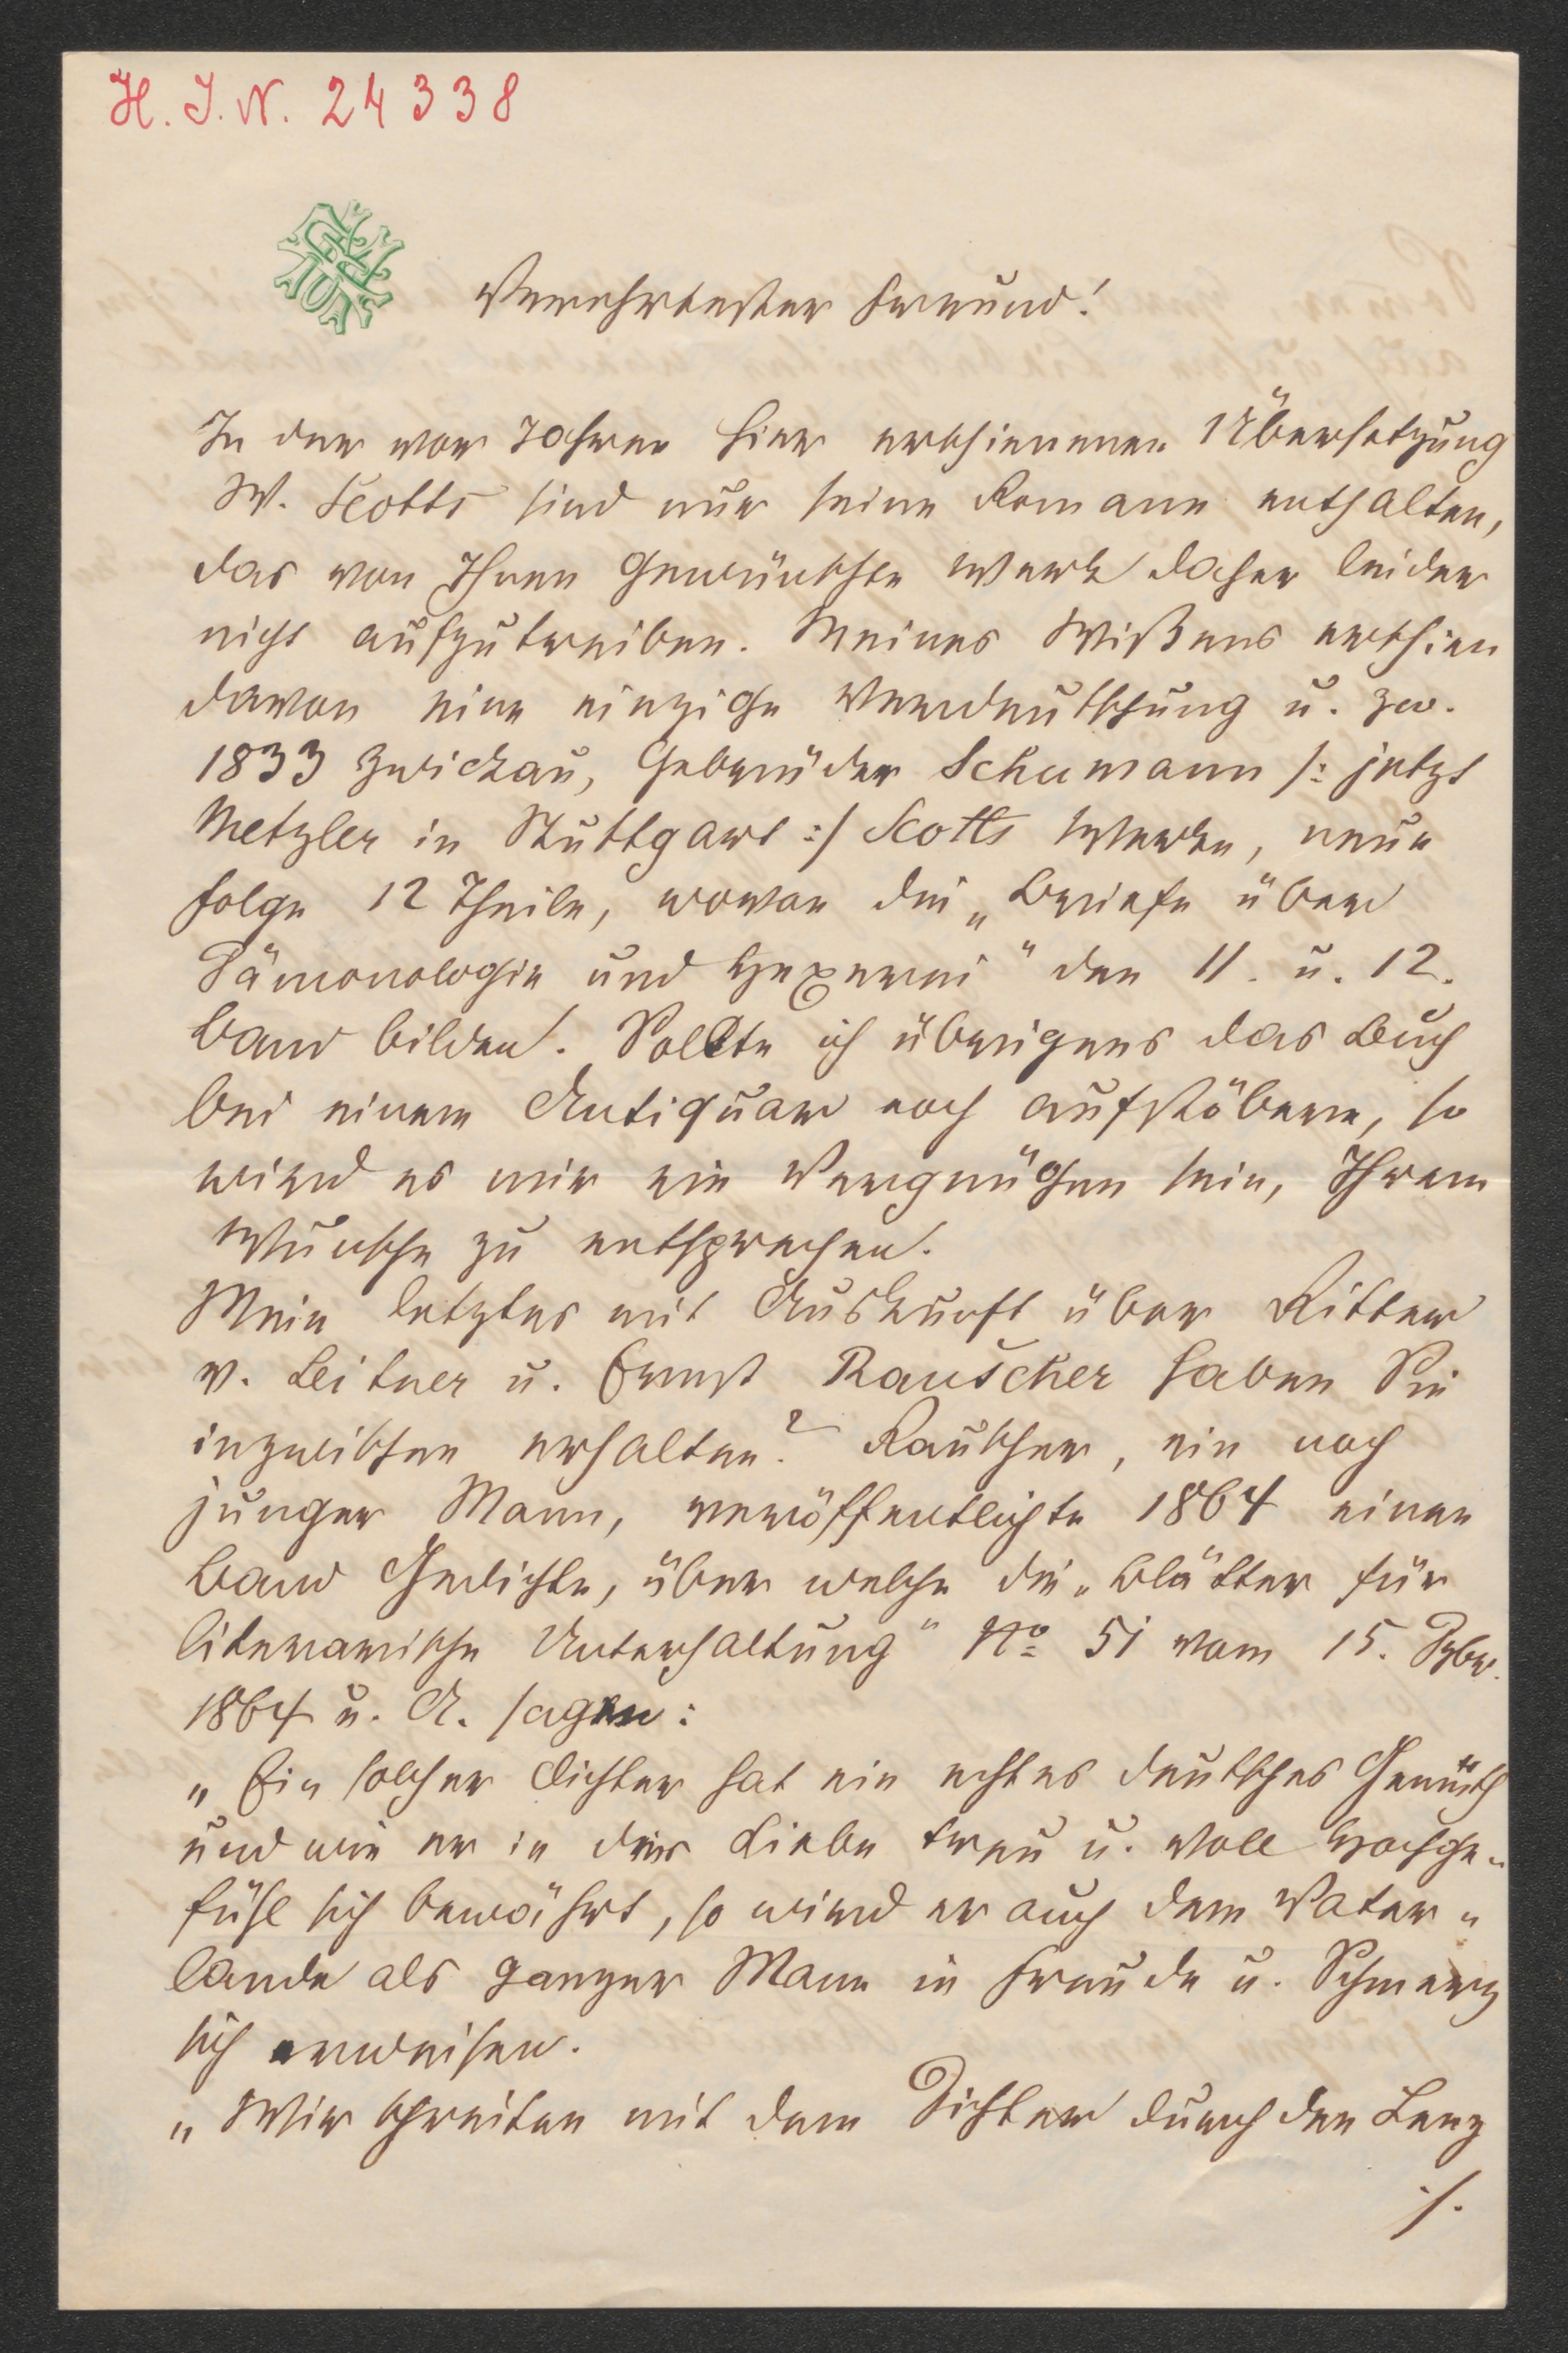 H. I. N. 24338
Verehrtester Freund!
In der vor Jahren hier erschienenen Übersetzung
W. Scotts sind nur seine Romane enthalten,
das von Ihnen gewünschte Werk daher leider
nicht aufzutreiben. Meines Wißens erschien
davon eine einzige Verdeutschung u. zw.
1833 Zwickau, Gebrüder Schumann /: jetzt
Metzler in Stuttgart :/ Scotts Werke, neue
Folge 12 Theile, wovon die „Briefe über
Dämonologie und Hexerei" den 11. u. 12.
Band bilden. Sollte ich übrigens das Buch
bei einem Antiquar noch aufstöbern, so
wird es mir ein Vergnügen sein, Ihrem
Wunsche zu entsprechen.
Mein letztes mit Auskunft über Ritter
v. Leitner u. Ernst Rauscher haben Sie
inzwischen erhalten? Rauscher, ein noch
junger Mann, veröffentlichte 1864 einen
Band Gedichte, über welche die „Blätter für
literarische Unterhaltung" No 51 vom 15. Dzbr.
1864 u. A. sagen:
„Ein solcher Dichter hat ein echtes deutsches Gemüth
und wie er in der Liebe treu u. voll Hochge-
fühl sich bewährt, so wird er auch dem Vater-
lande als ganzer Mann in Freude u. Schmerz
sich erweisen.
„Wir schreiten mit dem Dichter durch den Lenz
./.